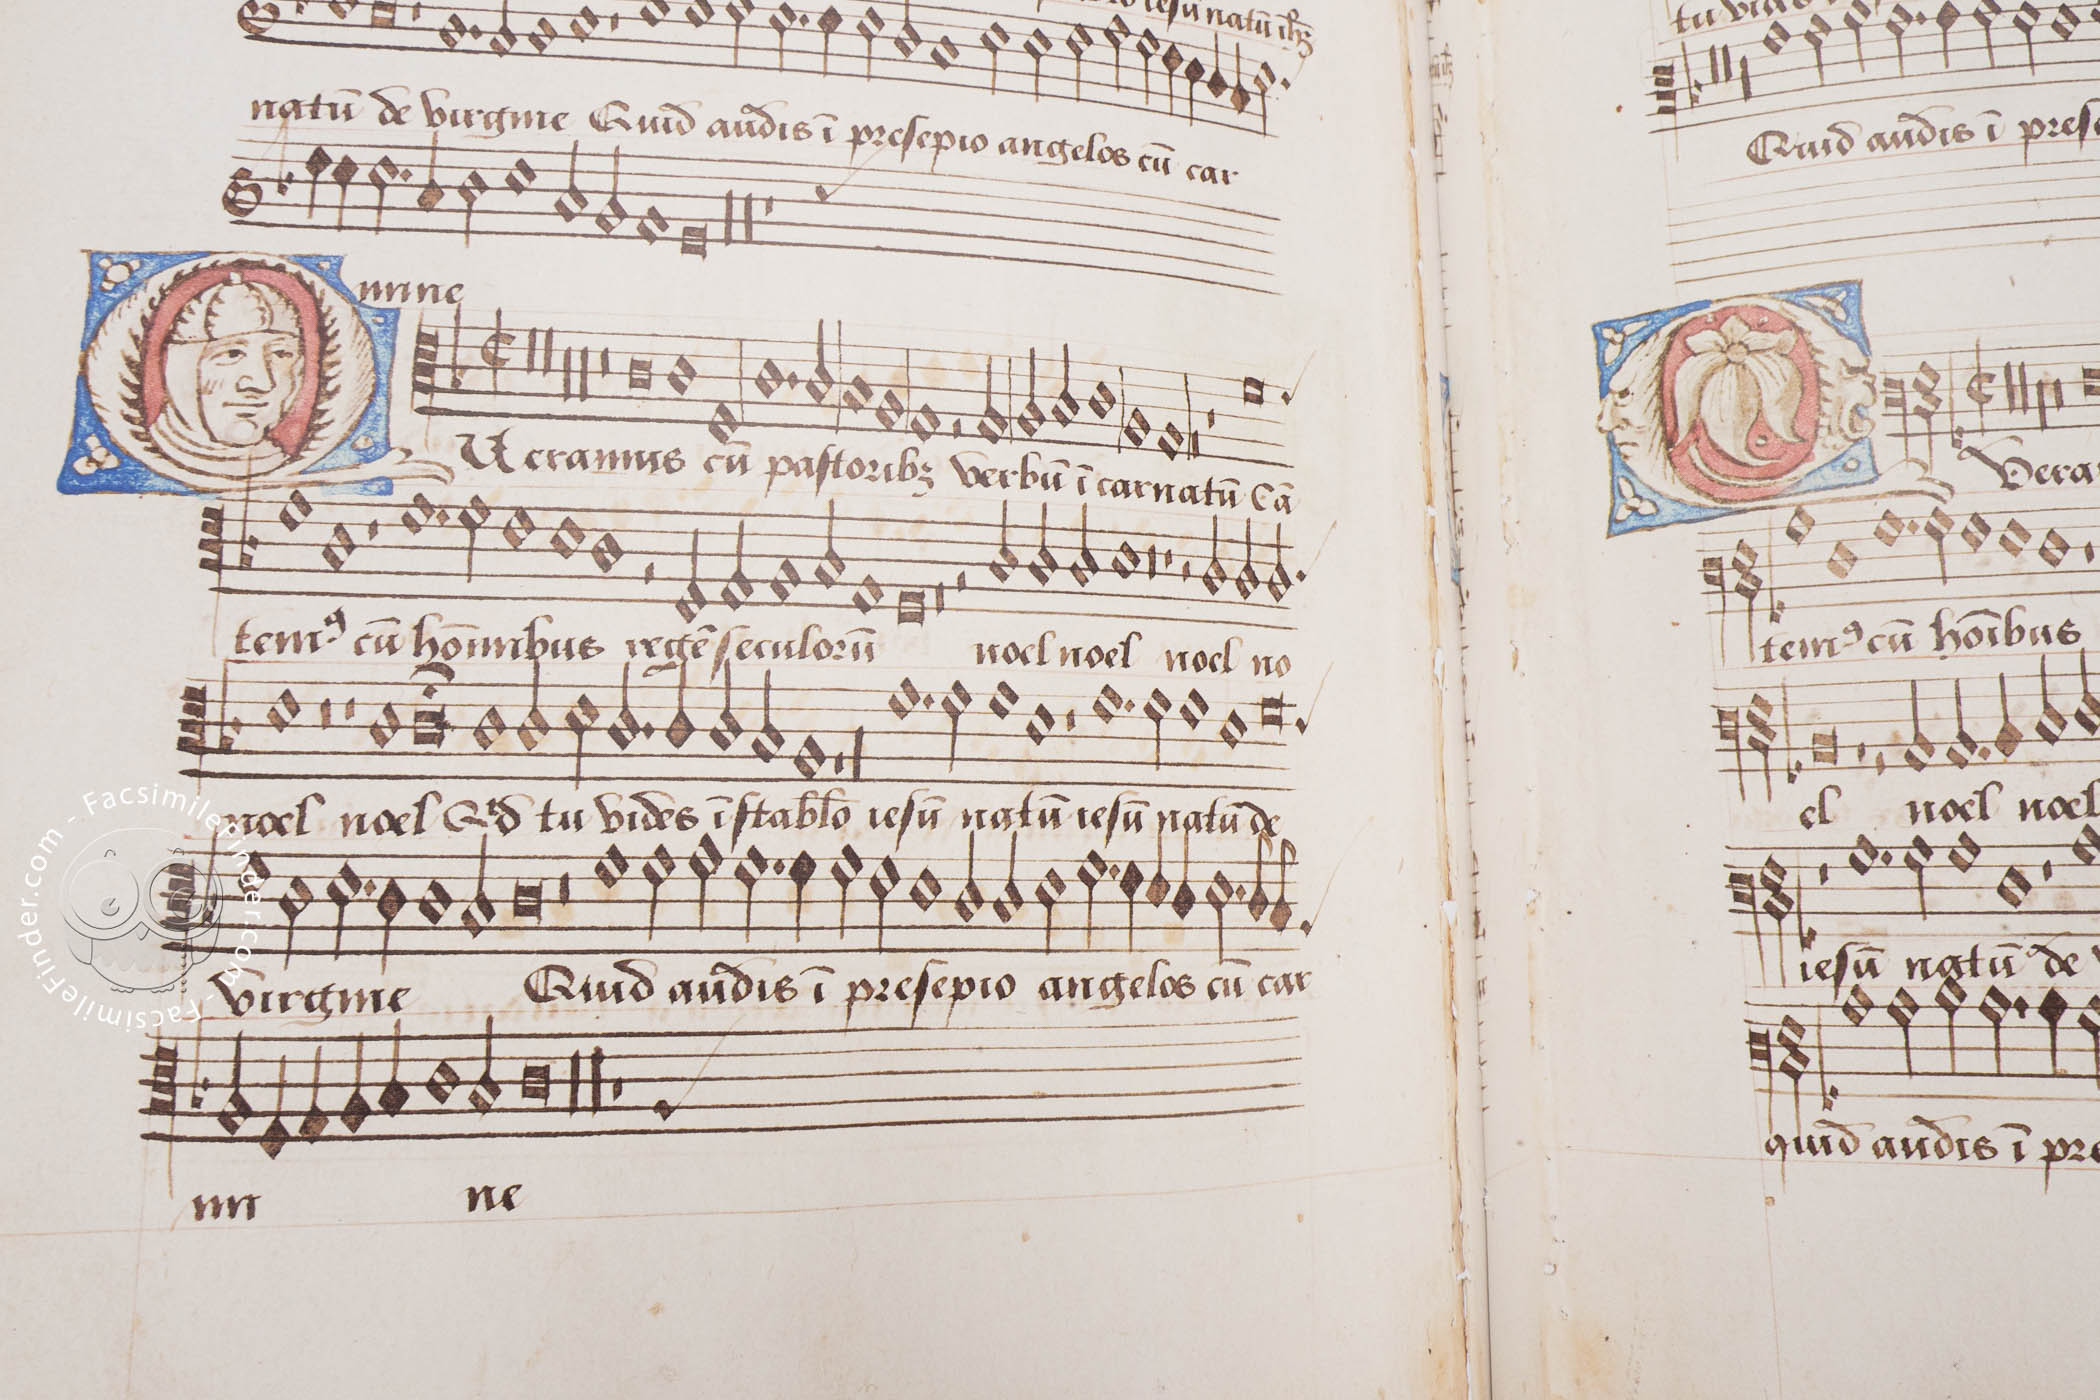 iesū natū iħz
natū de virgine Quid audis ī presepio angelos cū car
mine
Ueramus cū pastoribȝ verbū īcarnatū Cā
temꝰ cū hoīnibus regē seculorū noel noel noel no
noel noel Qͥd tu vides ī stablo iesū natū iesū natū de
virgine Quid audis ī presepio angelos cū car
mi ne
tu vides
Quid audis ī prese
Vera
temꝰ cū hoībus
el noel noel
iesū natū de v
quid audis ī pre
FacsimileFinder.com - FacsimileFinder.com - FacsimileFinder.com